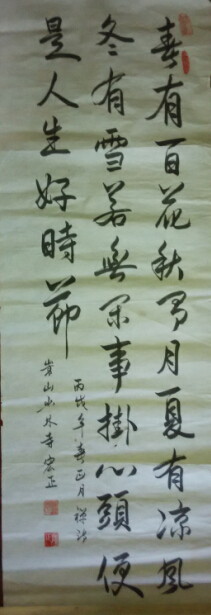 春有百花秋有月夏有凉風
冬有雪若無闲事掛心頭便
是人生好時節
丙戌年春正月
嵩山少林寺